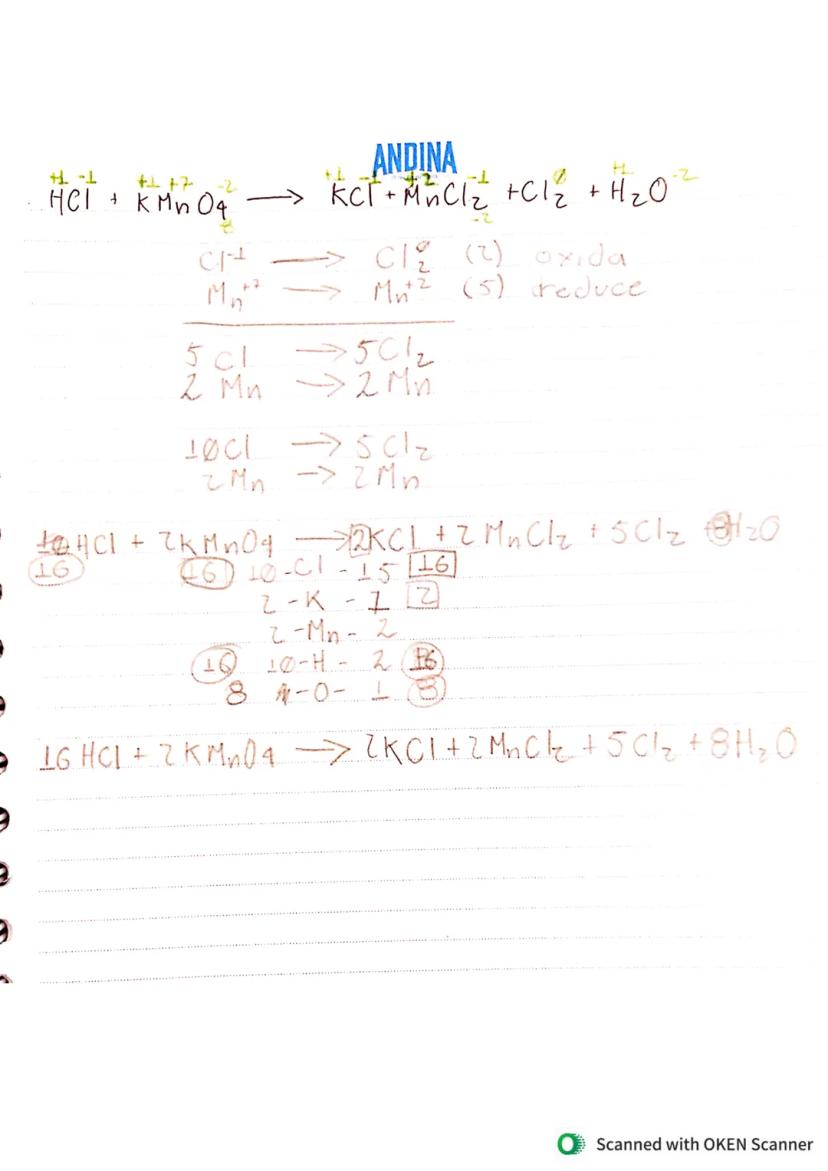 ANDINA
+1 -1 +1 +7 -2 +1 -1 +2 -1 0 +1 -2
HCl + KMnO4 → KCl + MnCl2 + Cl2 + H2O
-8 -2
Cl-1 → Cl2 0 (2) oxida
Mn+7 → Mn+2 (5) reduce
5 Cl → 5Cl2
2 Mn → 2 Mn
10Cl → 5 Cl2
2Mn → 2Mn
HCl + 2KMnO4 → 2KCl + 2 MnCl2 + 5Cl2 + 8H2O
16 16 10-Cl-15 16
2-K-1 2
2-Mn-2
16 10-H-2 16
8 -O- 1 8
16 HCl + 2KMnO4 → 2KCl + 2MnCl2 + 5Cl2 + 8H2O
Scanned with OKEN Scanner